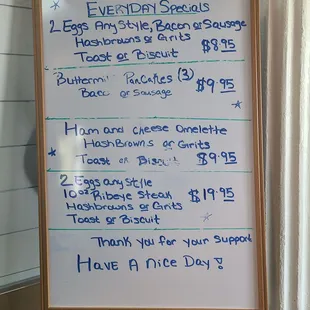 EVERYDAY SPECIALS
2 Eggs Any Style, Bacon or Sausage
Hashbrowns or Grits
Toast or Biscuit $8.95
Buttermil Pancakes (3)
Bacc or Sausage $9.95
Ham and Cheese Omelette
Hash Browns or Grits
Toast or Biscuit $9.95
2 Eggs any Style
10oz Ribeye Steak $19.95
Hashbrowns or Grits
Toast or Biscuit
Thank you for your Support
HAVE A Nice DAY!